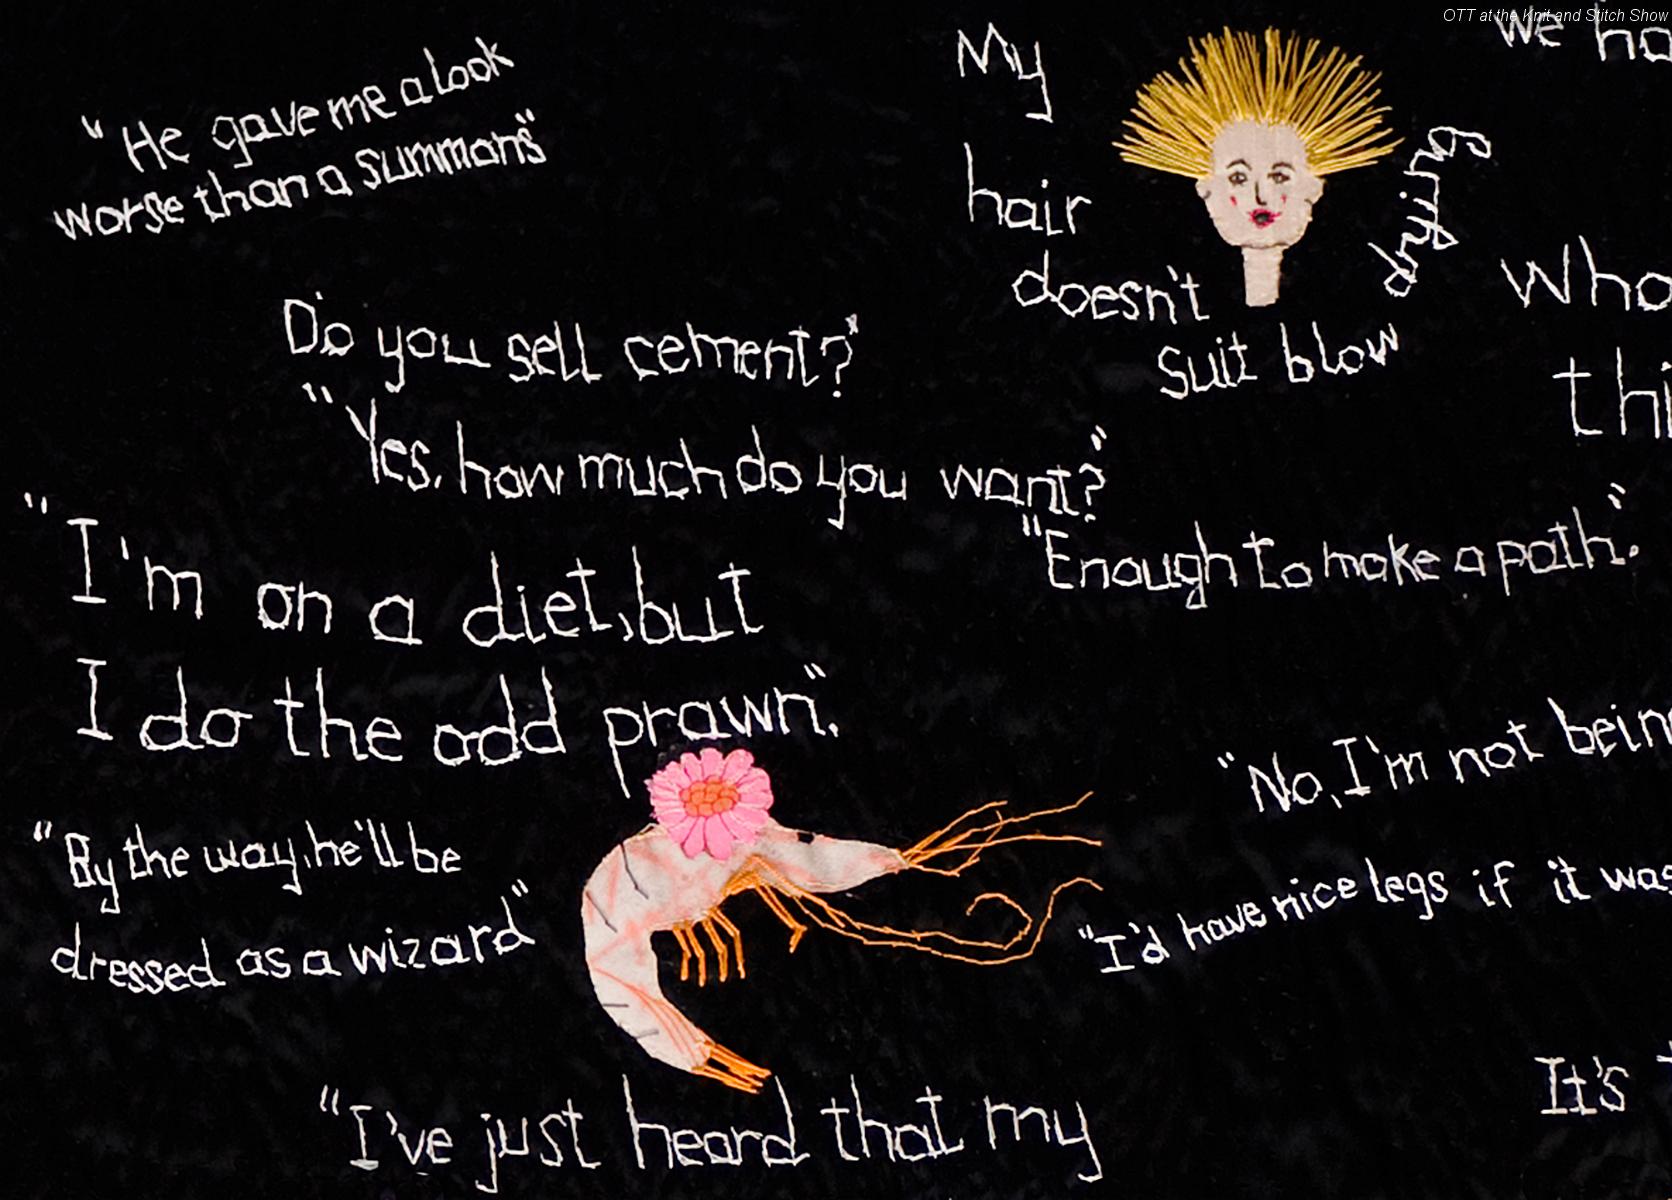 OTT at the Knit and Stitch Show
"He gave me a look
worse than a summons"
My
hair
doesn't
suit blow
drying
we ha
Do you sell cement?"
"Yes, how much do you want?"
"Enough to make a path."
Who
thi
"I'm on a diet, but
I do the odd prawn".
"No, I'm not bein
"By the way, he'll be
dressed as a wizard"
"I'd have nice legs if it was
It's
"I've just heard that my